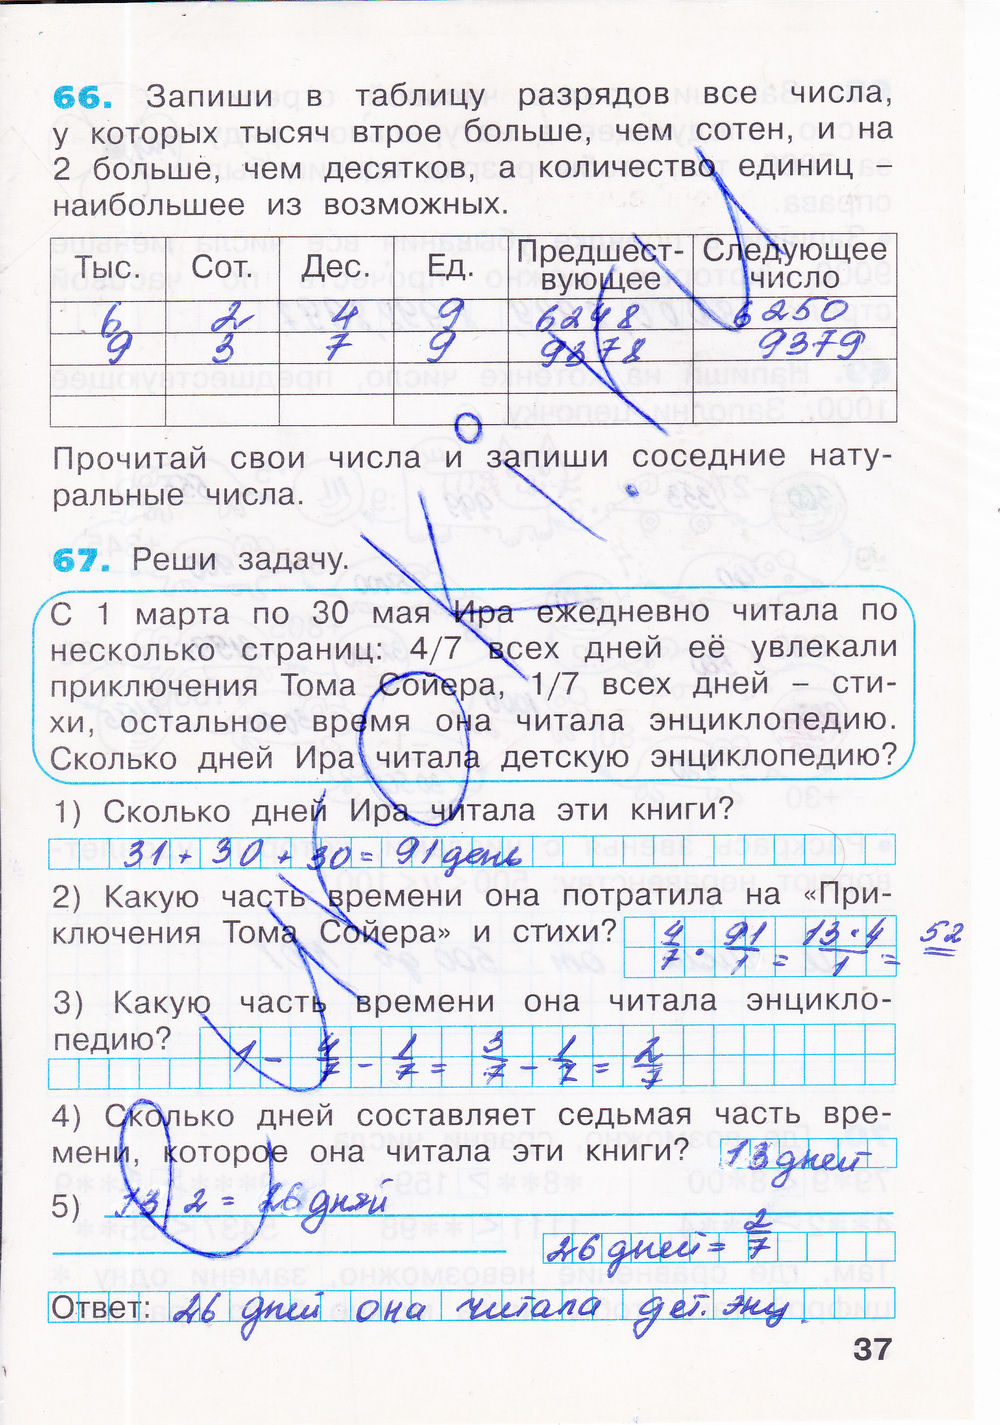 66. Запиши в таблицу разрядов все числа,
у которых тысяч втрое больше, чем сотен, и на
2 больше, чем десятков, а количество единиц –
наибольшее из возможных.
Тыс. Сот. Дес. Ед. Предшест-вующее Следующее число
6 2 4 9 6248 6250
9 3 7 9 9378 9379
Прочитай свои числа и запиши соседние нату-
ральные числа.
67. Реши задачу.
С 1 марта по 30 мая Ира ежедневно читала по
несколько страниц: 4/7 всех дней её увлекали
приключения Тома Сойера, 1/7 всех дней – сти-
хи, остальное время она читала энциклопедию.
Сколько дней Ира читала детскую энциклопедию?
1) Сколько дней Ира читала эти книги?
31 + 30 + 30 = 91 день
2) Какую часть времени она потратила на «При-
ключения Тома Сойера» и стихи? 4/7 · 91/1 = 13·4/1 = 52
3) Какую часть времени она читала энцикло-
педию? 1 - 4/7 - 1/7 = 3/7 - 1/7 = 2/7
4) Сколько дней составляет седьмая часть вре-
мени, которое она читала эти книги? 13 дней
5) 13 · 2 = 26 дняй
26 дней = 2/7
Ответ: 26 дней она читала дет. энц.
37